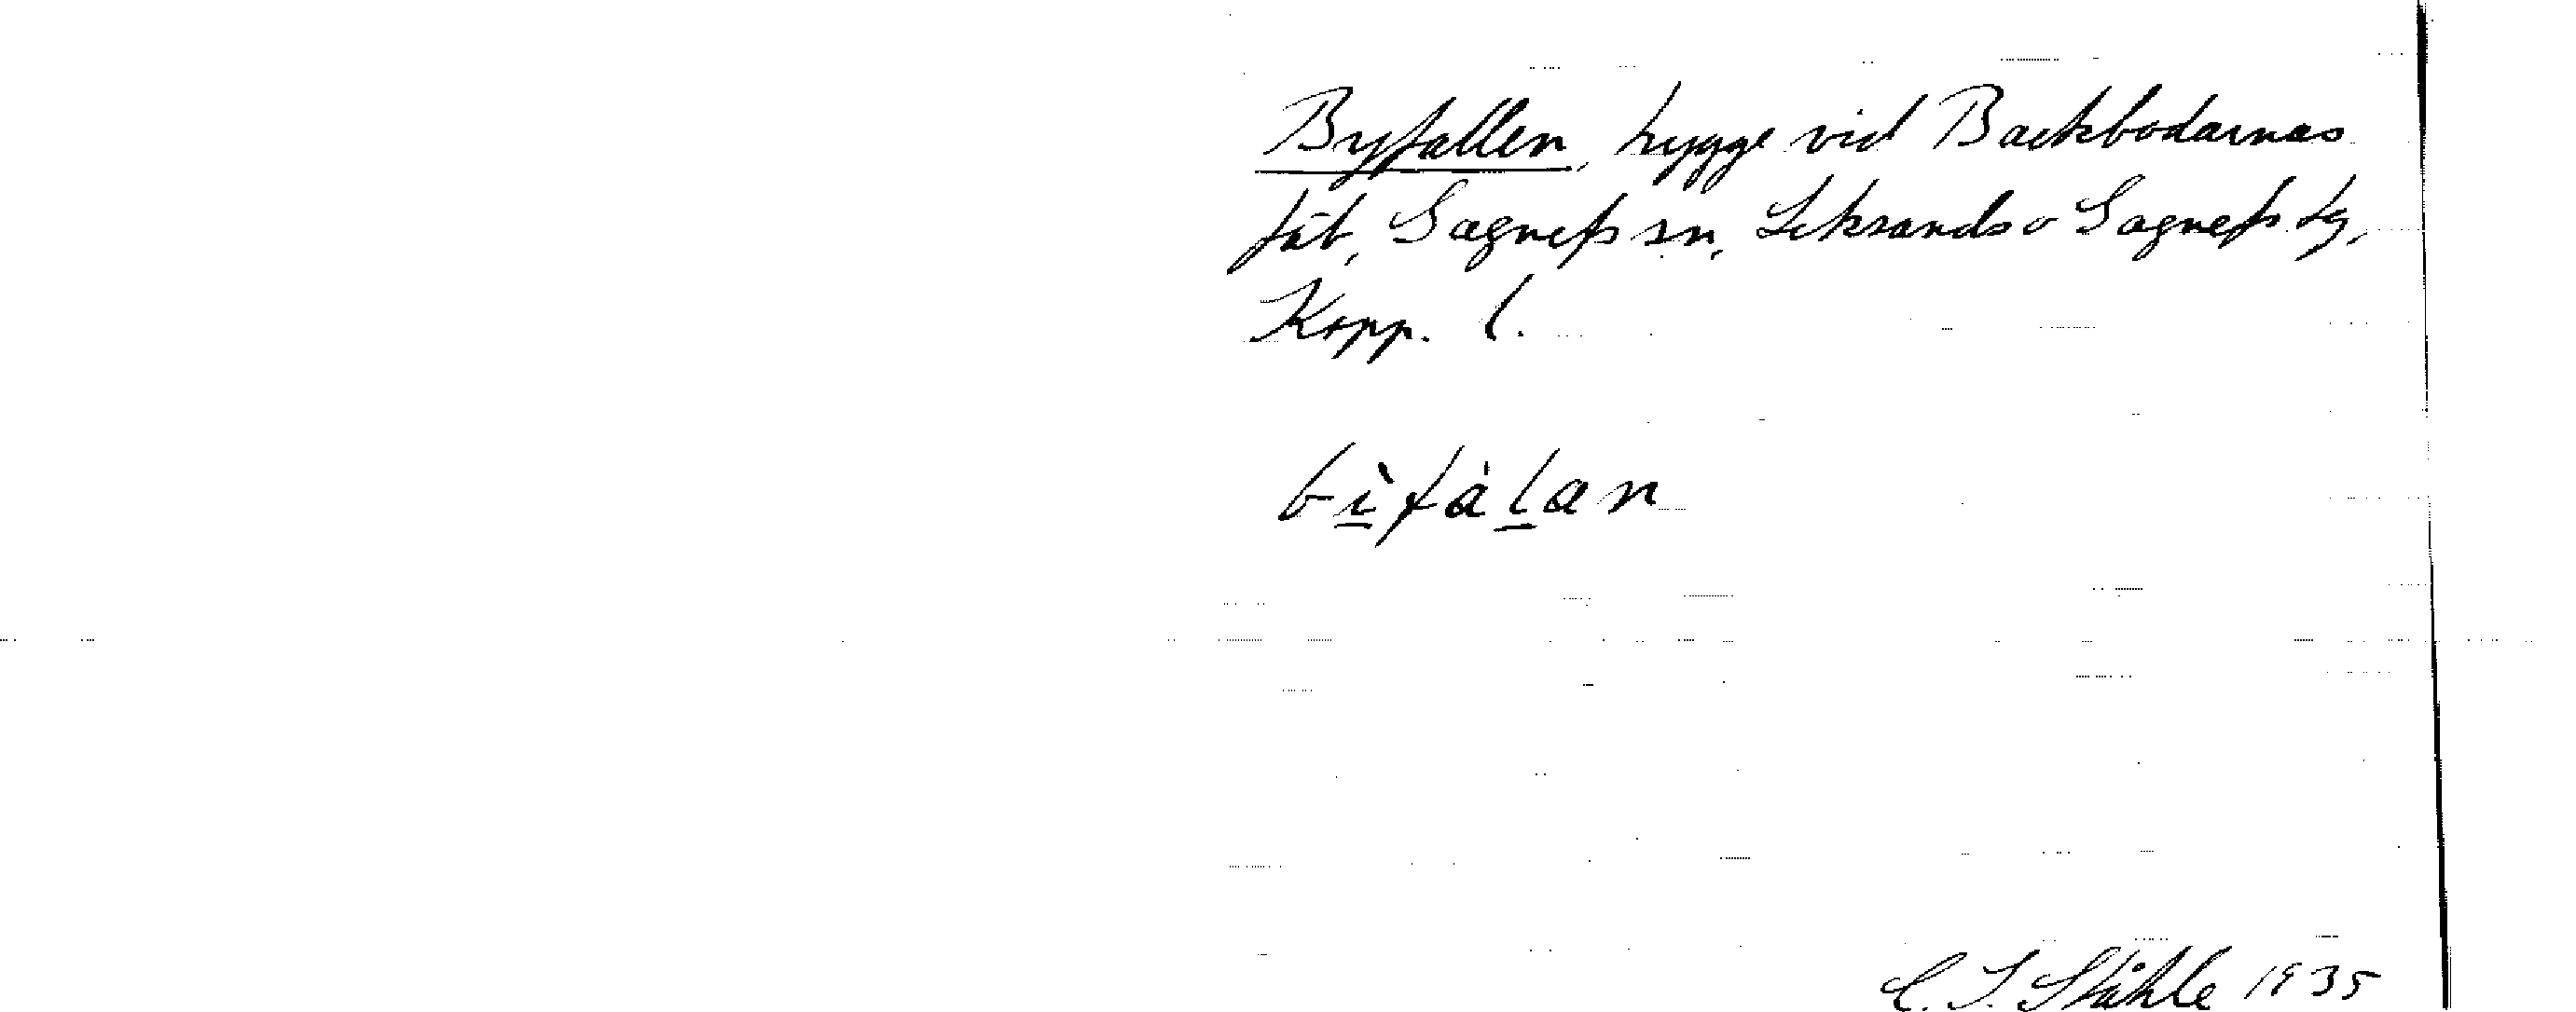 Byfallen, hygge vid Backbodarnas
fäb, Gagnefs sn, Leksands o Gagnefs tg,
Kopp. l.
bìfàlan
C. I. Ståhle 1935